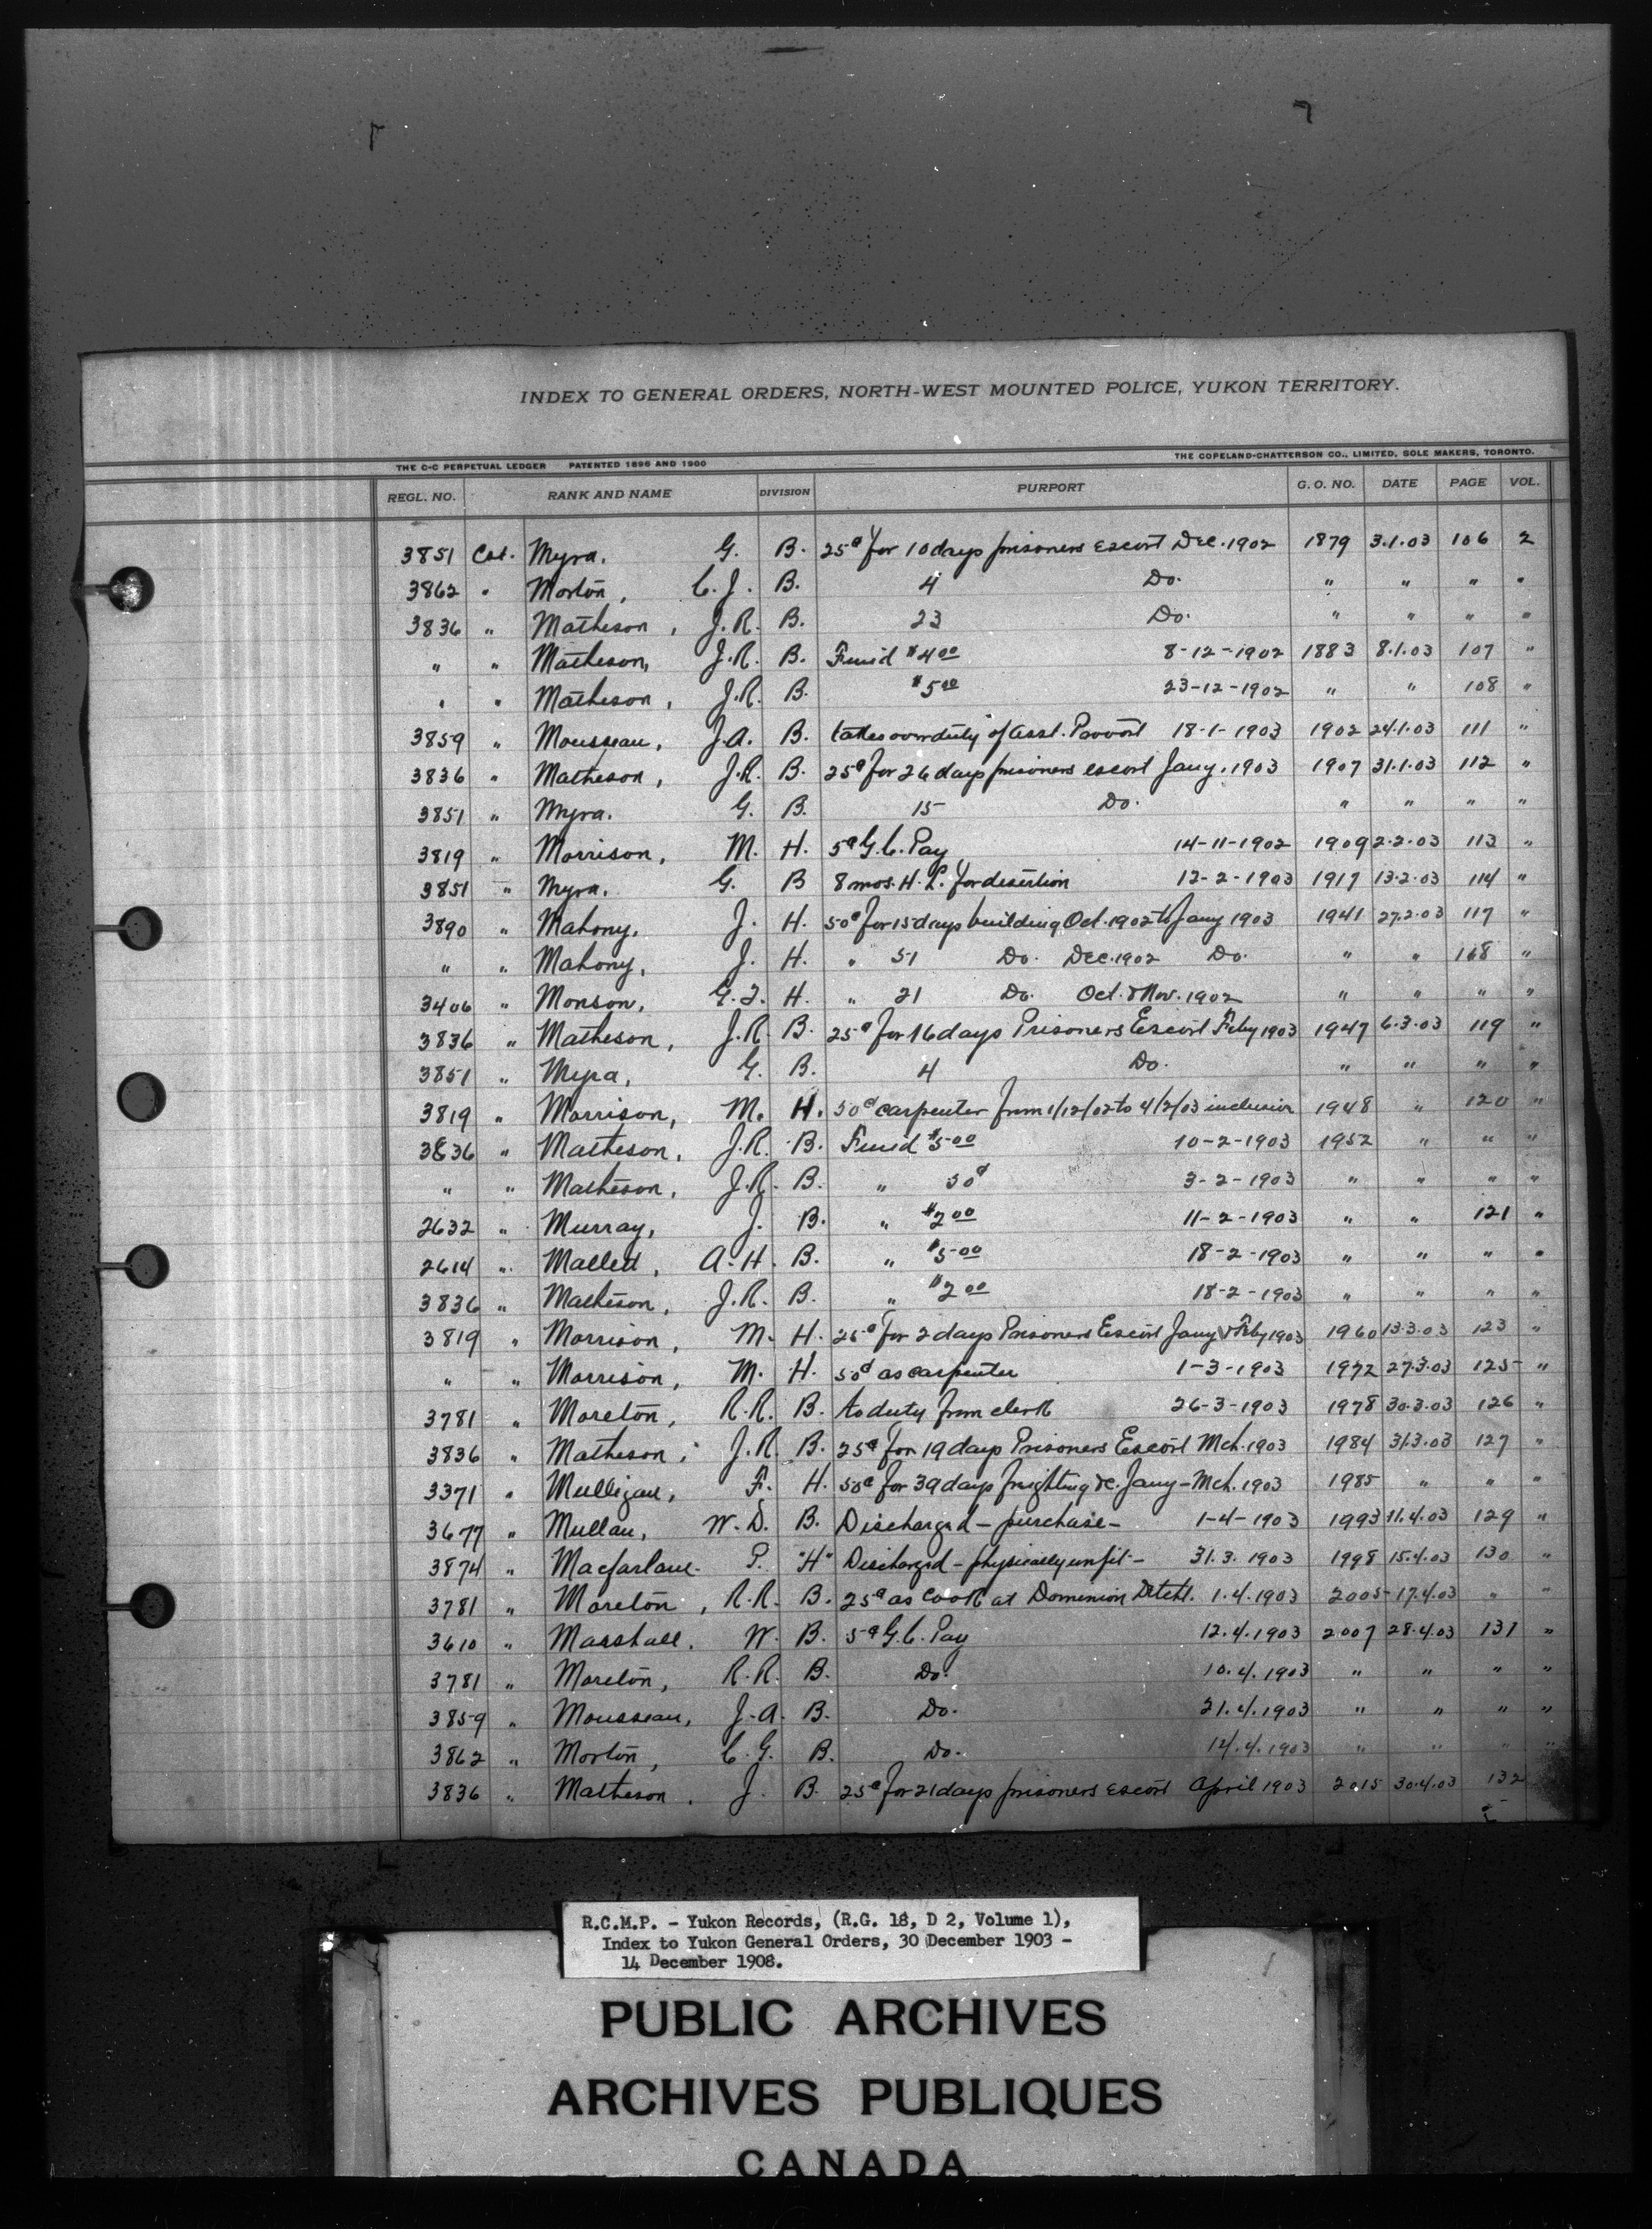 INDEX TO GENERAL ORDERS, NORTH-WEST MOUNTED POLICE, YUKON TERRITORY.
THE C-C PERPETUAL LEDGER PATENTED 1896 AND 1900 THE COPELAND-CHATTERSON CO., LIMITED, SOLE MAKERS, TORONTO.
REGL. NO. RANK AND NAME DIVISION PURPORT G. O. NO. DATE PAGE VOL.
3851 Cst. Myra. G. B. 25¢ for 10 days prisoners escort Dec. 1902 1879 3.1.03 106 2
3862 " Morton, C. J. B. 4 Do. " " " "
3836 " Matheson, J. R. B. 23 Do. " " " "
" " Matheson, J. R. B. Fined $4.00 8-12-1902 1883 8.1.03 107 "
" " Matheson, J. R. B. $5.00 23-12-1902 " " 108 "
3859 " Mousseau, J. A. B. takes over duty of asst. Provost 18-1-1903 1902 24.1.03 111 "
3836 " Matheson, J. R. B. 25¢ for 26 days prisoners escort Jany. 1903 1907 31.1.03 112 "
3851 " Myra. G. B. 15 Do. " " " "
3819 " Morrison, M. H. 5¢ G. C. Pay 14-11-1902 1909 2.2.03 113 "
3851 " Myra. G. B 8 mos. H. L. for desertion 12-2-1903 1917 13.2.03 114 "
3890 " Mahony, J. H. 50¢ for 15 days building Oct. 1902 to Jany 1903 1941 27.2.03 117 "
" " Mahony, J. H. " 51 Do. Dec. 1902 Do. " " 168 "
3406 " Monson, G. J. H. " 21 Do. Oct. & Nov. 1902 " " " "
3836 " Matheson, J. R. B. 25¢ for 16 days Prisoners Escort Feby 1903 1947 6.3.03 119 "
3851 " Myra, G. B. 4 Do. " " " "
3819 " Morrison, M. H. 50¢ carpenter from 1/12/02 to 4/2/03 inclusive 1948 " 120 "
3836 " Matheson, J. R. B. Fined $5.00 10-2-1903 1952 " " "
" " Matheson, J. R. B. " 50¢ 3-2-1903 " " " "
2632 " Murray, J. B. " $2.00 11-2-1903 " " 121 "
2614 " Mallett, A. H. B. " $5.00 18-2-1903 " " " "
3836 " Matheson, J. R. B. " $2.00 18-2-1903 " " " "
3819 " Morrison, M. H. 25¢ for 2 days Prisoners Escort Jany & Feby 1903 1960 13.3.03 123 "
" " Morrison, M. H. 50¢ as carpenter 1-3-1903 1972 27.3.03 125 "
3781 " Moreton, R. R. B. to duty from clerk 26-3-1903 1978 30.3.03 126 "
3836 " Matheson, J. R. B. 25¢ for 19 days Prisoners Escort Mch. 1903 1984 31.3.03 127 "
3371 " Mulligan, F. H. 50¢ for 39 days freighting &c. Jany - Mch. 1903 1985 " " "
3677 " Mullan, W. D. B. Discharged - purchase - 1-4-1903 1993 11.4.03 129 "
3874 " Macfarlane. P. "H" Discharged - physically unfit - 31.3.1903 1998 15.4.03 130 "
3781 " Moreton, R. R. B. 25¢ as cook at Dominion Detcht. 1.4.1903 2005 17.4.03 " "
3610 " Marshall, W. B. 5¢ G. C. Pay 12.4.1903 2007 28.4.03 131 "
3781 " Moreton, R. R. B. Do. 10.4.1903 " " " "
3859 " Mousseau, J. A. B. Do. 21.4.1903 " " " "
3862 " Morton, C. G. B. Do. 14.4.1903 " " " "
3836 " Matheson, J. B. 25¢ for 21 days prisoners escort April 1903 2015 30.4.03 132
R.C.M.P. - Yukon Records, (R.G. 18, D 2, Volume 1),
Index to Yukon General Orders, 30 December 1903 -
14 December 1908.
PUBLIC ARCHIVES
ARCHIVES PUBLIQUES
CANADA